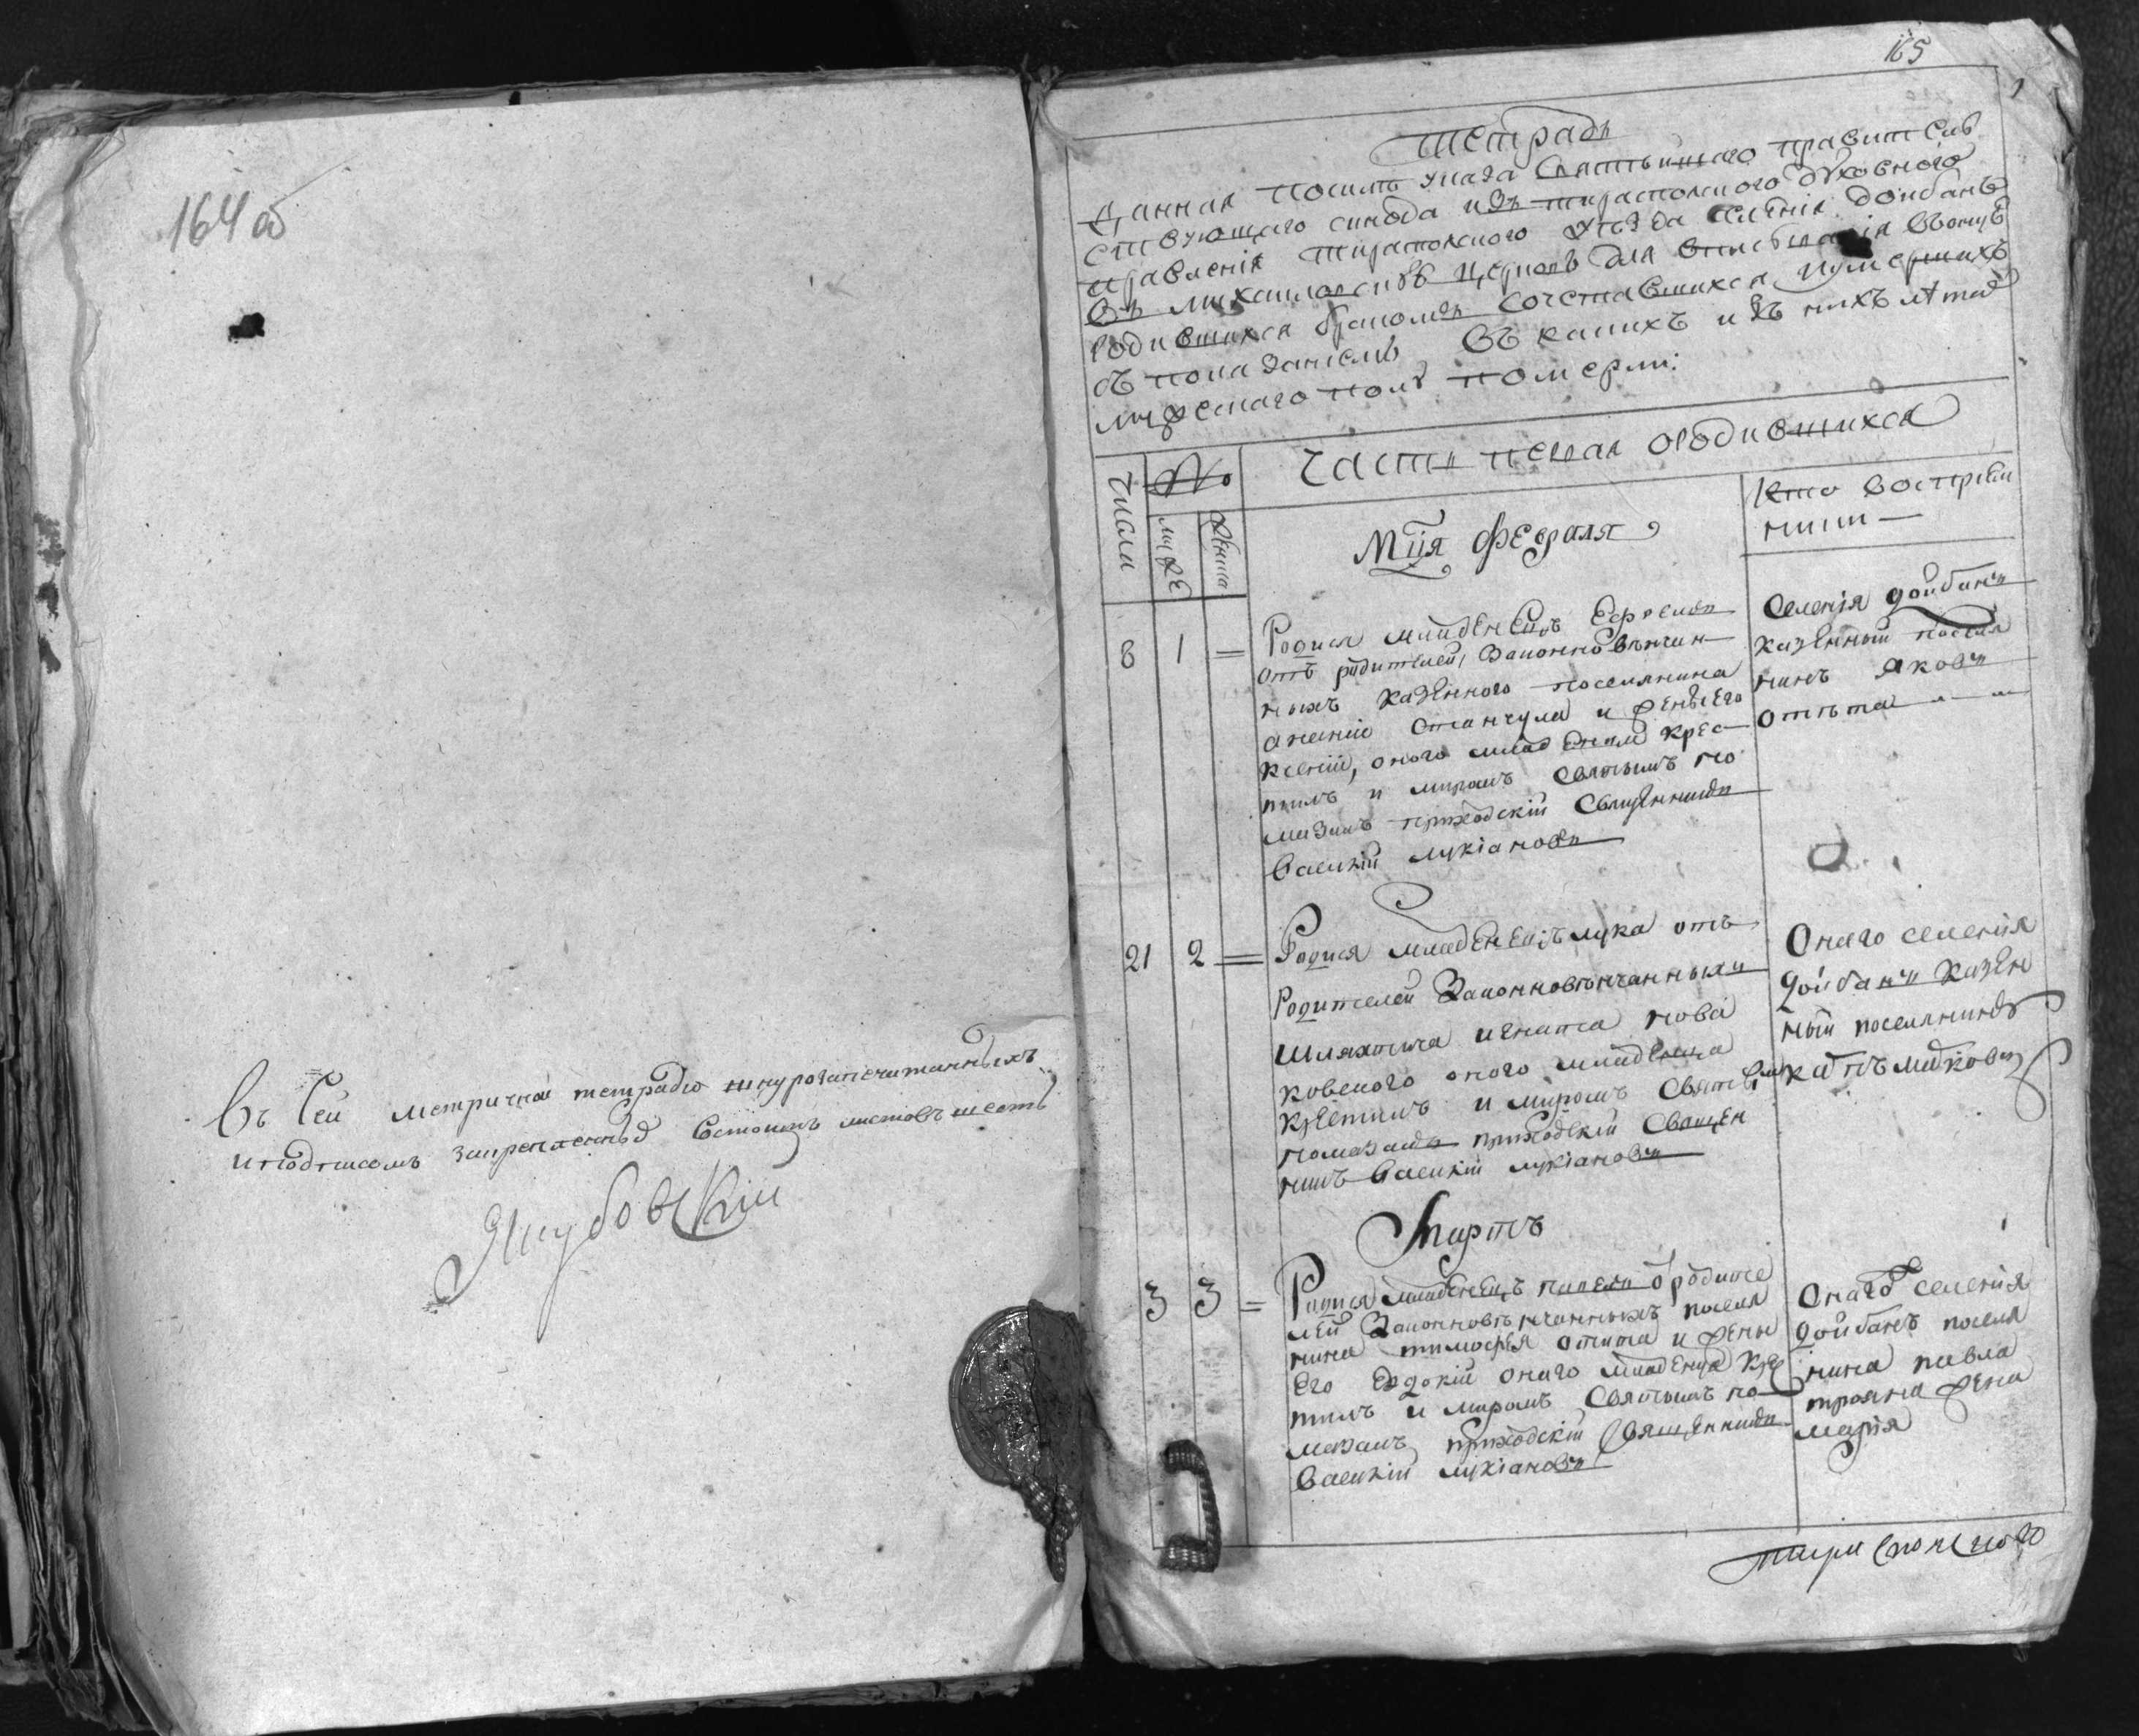 164 об
Въ Сей метричной тетрадѣ шнурозапечатанныхъ
и подписомъ закрепленныхъ Состоитъ листовъ шесть
Якубовскій
165
1
Тетрадь
Данная посилѣ указа Святѣйшаго правител
ствующаго синода изъ тираспольского духовного
правленія тираспольского уѣзда селенія дойбанъ
въ михайловскую церковь для
родившихся бракомъ сочетавшихся умершихъ
съ показаніемъ въ какихъ изъ нихъ лѣта
мужескаго полу померли:
Числа
№
муже
женска
часть первая ородившихся
Мця февраля
Кто воспріем
ники
8
1
=
Родися младенецъ Ефремъ
отъ родителей Законновѣнчан
ныхъ казенного поселянина
ананіи Станчула и жены Его
Ксеніи, оного младенца крес
тилъ и миромъ святымъ по
мазалъ приходскій Священникъ
Василій Лукіановъ
Селенія дойбанъ
казенный поселя
нинъ яковъ
отята
21
2
=
Родися младенецъ лука отъ
Родителей Законновѣнчанныхъ
шляхтича игната нова
ковского оного младенца
крестилъ и миромъ Святымъ
помазалъ приходскій Священ
никъ Василій лукіановъ
Онаго селенія
дойбанъ Казен
ный поселянинъ
Мартъ
3
3
=
Родися младенецъ павелъ о родите
лей Законновѣнчанныхъ поселя
нина тимофѣя отята и жены
Его Евдокіи онаго младенца кре
тилъ и миромъ Святымъ по
мазалъ приходскій Священникъ
Василій лукіановъ
Онаго селенія
дойбанъ поселя
нина павла
трояна жена
марія
тираспольского